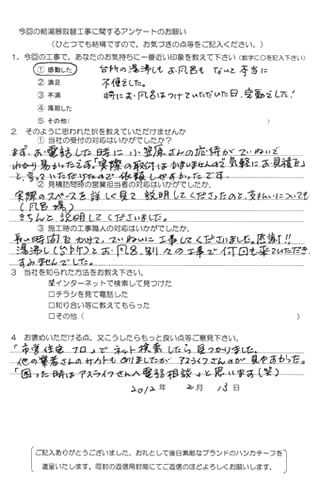 今回の給湯器取替工事に関するアンケートのお願い
（ひとつでも結構ですので、お気づきの点等をご記入ください。）
1．今回の工事で、あなたのお気持ちに一番近い印象を教えて下さい（数字に○を記入下さい）
① 感動した　台所の湯沸もお風呂もないと本当に
2 満足　不便でした。
3 不満　特にお風呂はつけていただいた日、感動でした！
4 落胆した
5 その他（　　　）
2．そのように思われた訳を教えていただけませんか
① 当社の受付の対応はいかがでしたか？
まず、お電話した時に小笠原さんの応待がていねいで
わかり易かったです。「実際の取付はかまいませんので気軽にお見積を」
と、言っていただけたので依頼しやすかったです。
② 見積訪問時の営業担当者の対応はいかがでしたか。
実際のスペースを詳しく見て説明してくださったのと、支払いについても
（風呂場）
きちんと説明してくださいました。
③ 施工時の工事職人の対応はいかがでしたか。
長い時間をかけて、ていねいに工事してくださいました。感謝!!
湯沸し（台所）とお風呂、別々の工事で何回も来ていただき、
すみませんでした。
3　当社を知られた方法をお教え下さい。
☑インターネットで検索して見つけた
□チラシを見て電話した
□知り合い等に教えてもらった
□その他（　　　）
4．お褒めいただける点、又こうしたらもっと良い点等ご意見下さい。
「市営住宅 フロ」でネット検索したら見つかりました。
他の業者さんのサイトもありましたがアスライフさんが見やすかった。
「困った時はアスライフさんへ電話相談」と思います（笑）
2012年 2月 13日
ご記入ありがとうございました。お礼として後日素敵なブランドのハンカチーフを
進呈いたします。同封の返信用封筒にてご返信のほどよろしくお願いします。